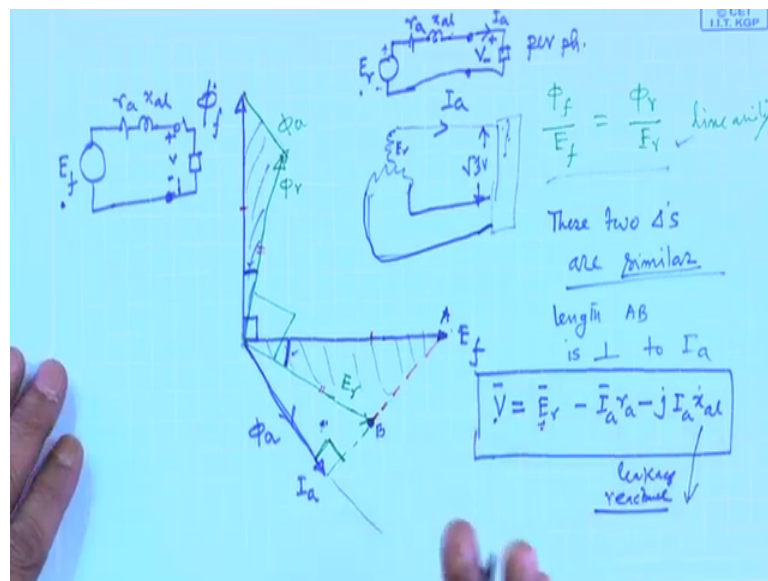 © CET
I.I.T. KGP
ra xal Ia
Er + V - per ph.
ra xal
Ef + V -
Φf
Φa
Φr
Ia
Er
√3V
Φf/Ef = Φr/Er linearity
These two Δ's
are similar
length AB
is ⊥ to Ia
A
Ef
Er
B
Φa
Ia
V̄ = Ēr - Īa ra - j Īa xal
leakage
reactance